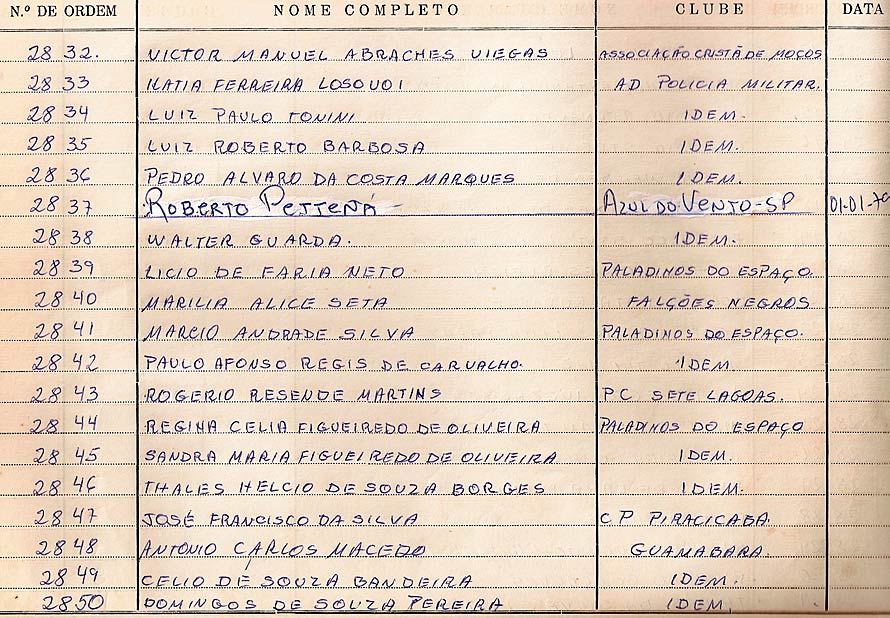 N.º DE ORDEM NOME COMPLETO CLUBE DATA
2832. VICTOR MANUEL ABRACHES VIEGAS ASSOCIAÇÃO CRISTÃ DE MOÇOS
2833 KATIA FERREIRA LOSOVOI AD POLICIA MILITAR.
2834 LUIZ PAULO TONINI IDEM.
2835 LUIZ ROBERTO BARBOSA IDEM.
2836 PEDRO ALVARO DA COSTA MARQUES IDEM.
2837 ROBERTO PETTENÁ - AZUL DO VENTO-SP 01-01-79
2838 WALTER GUARDA. IDEM.
2839 LICIO DE FARIA NETO PALADINOS DO ESPAÇO.
2840 MARILIA ALICE SETA FALÇÕES NEGROS
2841 MARCIO ANDRADE SILVA PALADINOS DO ESPAÇO.
2842 PAULO AFONSO REGIS DE CARVALHO. IDEM
2843 ROGERIO RESENDE MARTINS PC SETE LAGOAS.
2844 REGINA CELIA FIGUEIREDO DE OLIVEIRA PALADINOS DO ESPAÇO
2845 SANDRA MARIA FIGUEIREDO DE OLIVEIRA IDEM.
2846 THALES HELCIO DE SOUZA BORGES IDEM.
2847 JOSÉ FRANCISCO DA SILVA CP PIRACICABA.
2848 ANTONIO CARLOS MACEDO GUAMABARA.
2849 CELIO DE SOUZA BANDEIRA IDEM.
2850 DOMINGOS DE SOUZA PEREIRA IDEM.